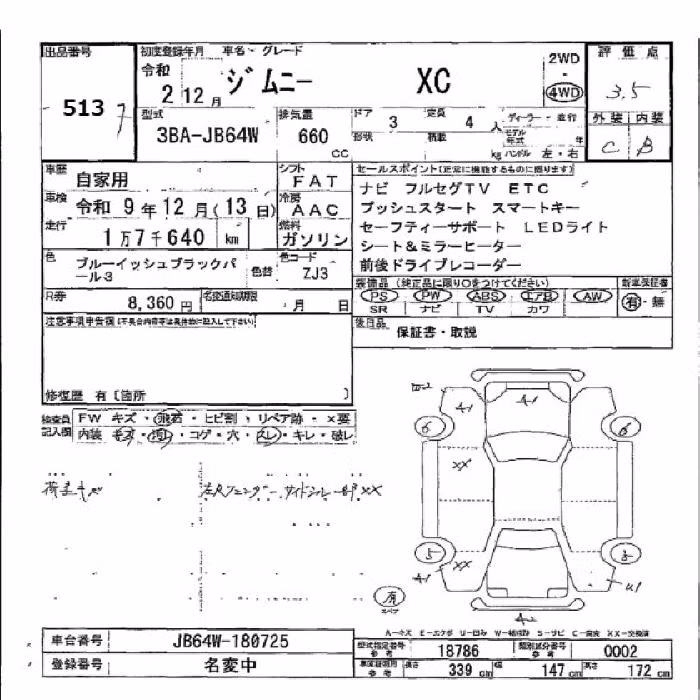 出品番号 初度登録年月 車名・グレード 2WD 評価点
513 令和 2 12月 ジムニー XC ・ 4WD 3.5
型式 3BA-JB64W 排気量 660 CC ドア 3 定員 4 人 ディーラー・並行 外装 内装
形状 積載 kg モデル年式 年 ハンドル 左・右 C B
車歴 自家用 シフト FAT セールスポイント(正常に機能するものに限ります)
車検 令和 9年 12月(13日) 冷房 AAC ナビ フルセグTV ETC
走行 1万7千640 km 燃料 ガソリン プッシュスタート スマートキー
セーフティーサポート LEDライト
シート&ミラーヒーター
前後ドライブレコーダー
色 ブルーイッシュブラックパール3 色替 色コード ZJ3
装備品 (純正品に限り○をつけてください) 新車保証書
R券 8,360円 名変通知期限 月 日 PS PW ABS エアB AW 有・無
SR ナビ TV カワ
注意事項申告欄(不具合内容等は具体的に記入して下さい) 後日品 保証書・取説
修復歴 有〔箇所 〕
検査員記入欄 FW キズ・飛石・ヒビ割・リペア跡・×要
内装 キズ・汚れ・コゲ・穴・スレ・キレ・破レ
荷室キズ
A1 A1
6 6
XX
5 XX
A1 U1
有 スペア
A2
A-キズ E-エクボ U-凹み W-補修跡 S-サビ C-腐食 XX-交換済
車台番号 JB64W-180725 型式指定番号 参考 18786 類別区分番号 参考 0002
登録番号 名変中 車庫証明用 参考 長さ 339cm 幅 147cm 高さ 172cm